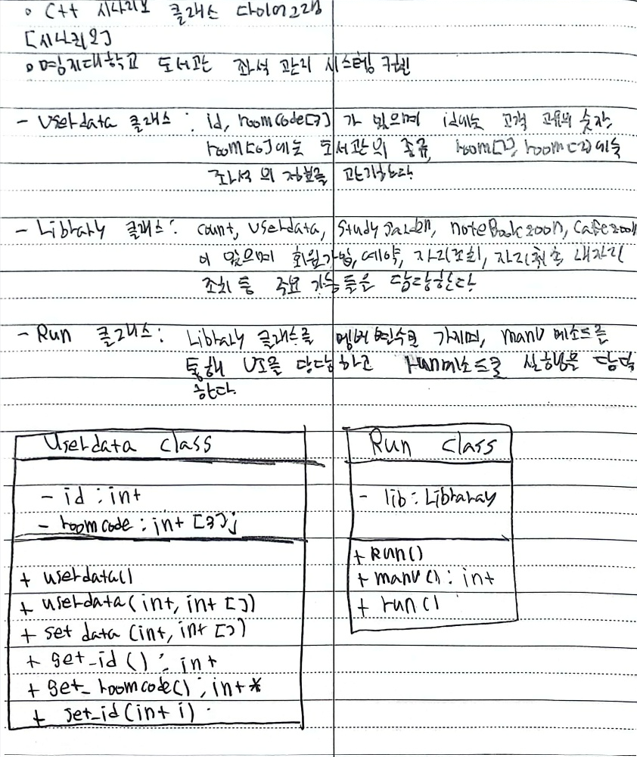 o C++ 시나리오 클래스 다이어그램
[시나리오]
o 명지대학교 도서관 좌석 관리 시스템 구현
- Userdata 클래스 : id, roomcode[3] 가 있으며 id에는 고객 고유의 숫자
room[0]에는 도서관의 종류, room[1], room[2]에는
좌석의 정보를 관리한다
- Library 클래스 : count, userdata, study garden, notebook zoon, cafe zoon
이 있으며 회원가입, 예약, 자리조회, 자리취소 내자리
조회 등 주요 기능들을 담당한다
- Run 클래스 : Library 클래스를 멤버변수로 가지며, manu 메소드를
통해 UI을 담당하고 run메소드로 실행을 담당
한다.
Userdata class
- id : int
- roomcode : int [3];
+ userdata()
+ userdata (int, int [])
+ set data (int, int [])
+ get_id () : int
+ get_roomcode() : int*
+ set_id (int i)
Run class
- lib : Libraray
+ Run()
+ manu() : int
+ run()